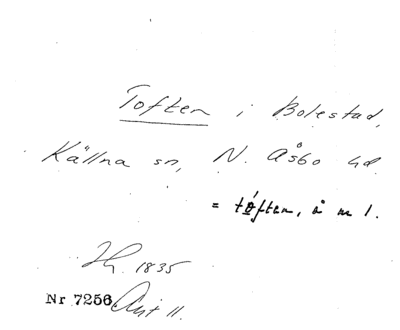 Toften i Bolestad,
Källna sn, N. Åsbo hd.
= tóften, å nr 1.
Lh. 1835
Nr 7256 Akt 11.